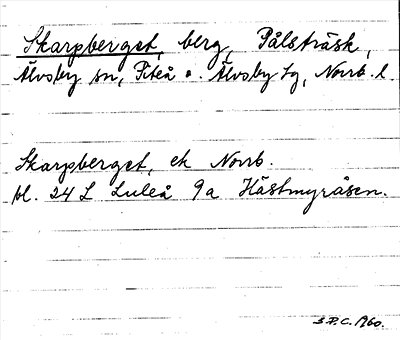 Skarpberget, berg, Pålsträsk,
Älvsby sn, Piteå o. Älvsby tg, Norrb. l.
Skarpberget, ek Norrb.
bl. 24 L Luleå 9a Hästmyråsen.
S.P.C. 1960.